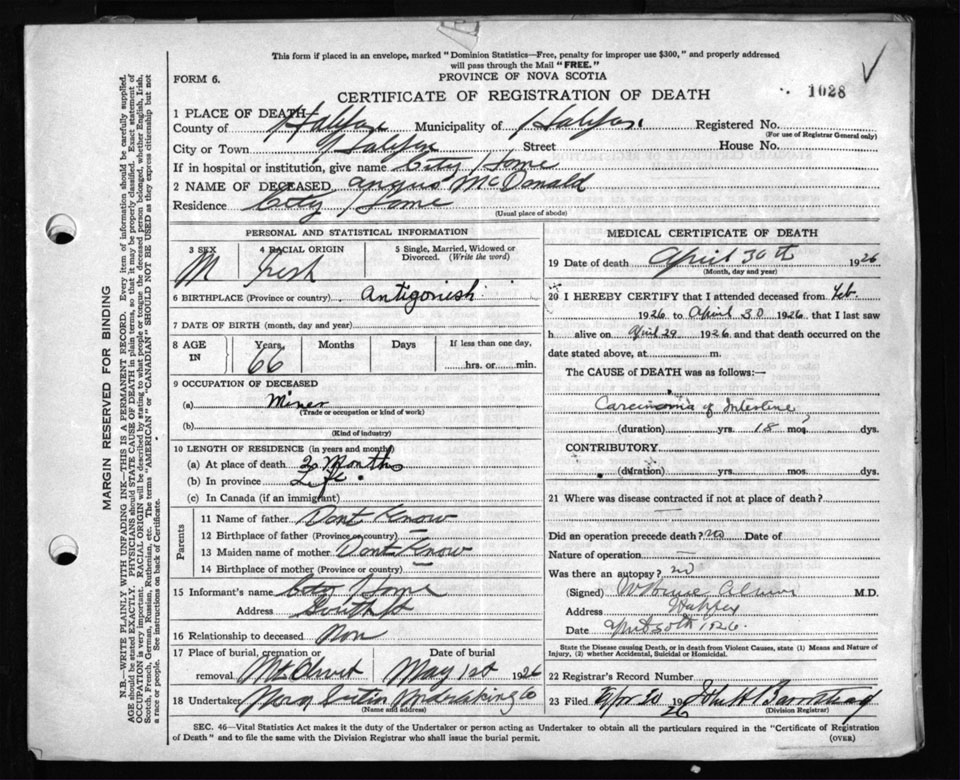 This form if placed in an envelope, marked "Dominion Statistics—Free, penalty for improper use $300," and properly addressed
will pass through the Mail "FREE."
FORM 6.
PROVINCE OF NOVA SCOTIA
CERTIFICATE OF REGISTRATION OF DEATH
1028
1 PLACE OF DEATH
County of Halifax Municipality of Halifax Registered No.
(For use of Registrar General only)
City or Town Halifax Street House No.
If in hospital or institution, give name City Home
2 NAME OF DECEASED Angus McDonald
Residence City Home
(Usual place of abode)
PERSONAL AND STATISTICAL INFORMATION
3 SEX
M
4 RACIAL ORIGIN
Irish
5 Single, Married, Widowed or
Divorced. (Write the word)
6 BIRTHPLACE (Province or country) Antigonish
7 DATE OF BIRTH (month, day and year)
8 AGE IN
Years 66
Months
Days
If less than one day,
hrs. or min.
9 OCCUPATION OF DECEASED
(a) Miner
(Trade or occupation or kind of work)
(b)
(Kind of industry)
10 LENGTH OF RESIDENCE (in years and months)
(a) At place of death Months
(b) In province Life
(c) In Canada (if an immigrant)
Parents
11 Name of father Dont Know
12 Birthplace of father (Province or country)
13 Maiden name of mother Dont Know
14 Birthplace of mother (Province or country)
15 Informant's name City Home
Address South St
16 Relationship to deceased Non
17 Place of burial, cremation or
removal Mt Olivet
Date of burial
May 1st 1926
18 Undertaker Undertaking Co
(Name and address)
MEDICAL CERTIFICATE OF DEATH
19 Date of death April 30th 1926
(Month, day and year)
20 I HEREBY CERTIFY that I attended deceased from Feb.
1926 to April 30 1926, that I last saw
h alive on April 29 1926 and that death occurred on the
date stated above, at m.
The CAUSE of DEATH was as follows:—
Carcinoma of Intestine
(duration) yrs. 18 mos. dys.
CONTRIBUTORY
(duration) yrs. mos. dys.
21 Where was disease contracted if not at place of death?
Did an operation precede death? no Date of
Nature of operation —
Was there an autopsy? no
(Signed) M.D.
Address Halifax
Date April 30th 1926.
State the Disease causing Death, or in death from Violent Causes, state (1) Means and Nature of
Injury, (2) whether Accidental, Suicidal or Homicidal.
22 Registrar's Record Number
23 Filed Apr 30 1926
(Division Registrar)
SEC. 46—Vital Statistics Act makes it the duty of the Undertaker or person acting as Undertaker to obtain all the particulars required in the "Certificate of Registration
of Death" and to file the same with the Division Registrar who shall issue the burial permit.
(OVER)
MARGIN RESERVED FOR BINDING
N.B.—WRITE PLAINLY WITH UNFADING INK—THIS IS A PERMANENT RECORD. Every item of information should be carefully supplied.
AGE should be stated EXACTLY. PHYSICIANS should STATE CAUSE OF DEATH in plain terms, so that it may be properly classified. Exact statement of
OCCUPATION is very important. RACIAL ORIGIN will be described by stating to what people or tongue the deceased person belonged, whether English, Irish,
Scotch, French, German, Russian, Ruthenian, etc. The terms "AMERICAN" or "CANADIAN" SHOULD NOT BE USED as they express citizenship but not
a race or people. See instructions on back of Certificate.